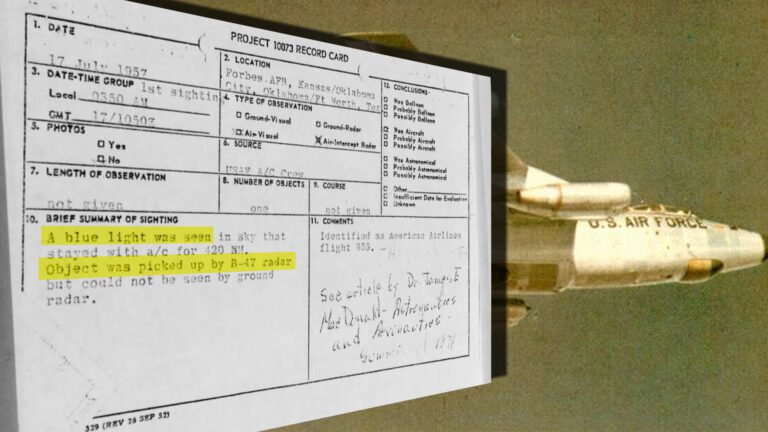 PROJECT 10073 RECORD CARD
1. DATE
17 July 1957
2. LOCATION
Forbes AFB, Kansas/Oklahoma
City, Oklahoma/Ft Worth, Tex
3. DATE-TIME GROUP 1st sighting
Local 0350 AM
GMT 17/1050Z
4. TYPE OF OBSERVATION
Ground-Visual
Ground-Radar
Air-Visual
Air-Intercept Radar
5. PHOTOS
Yes
No
6. SOURCE
USAF A/C Crew
7. LENGTH OF OBSERVATION
not given
8. NUMBER OF OBJECTS
one
9. COURSE
not given
10. BRIEF SUMMARY OF SIGHTING
A blue light was seen in sky that
stayed with a/c for 420 NM.
Object was picked up by B-47 radar
but could not be seen by ground
radar.
11. COMMENTS
Identified as american Airlines
flight 655.
See article by Dr. James E
MacDonald - Astronautics
and Aeronautics
1971
12. CONCLUSIONS
Was Balloon
Probably Balloon
Possibly Balloon
Was Aircraft
Probably Aircraft
Possibly Aircraft
Was Astronomical
Probably Astronomical
Possibly Astronomical
Other
Insufficient Data for Evaluation
Unknown
329 (REV 26 SEP 52)
U.S. AIR FORCE